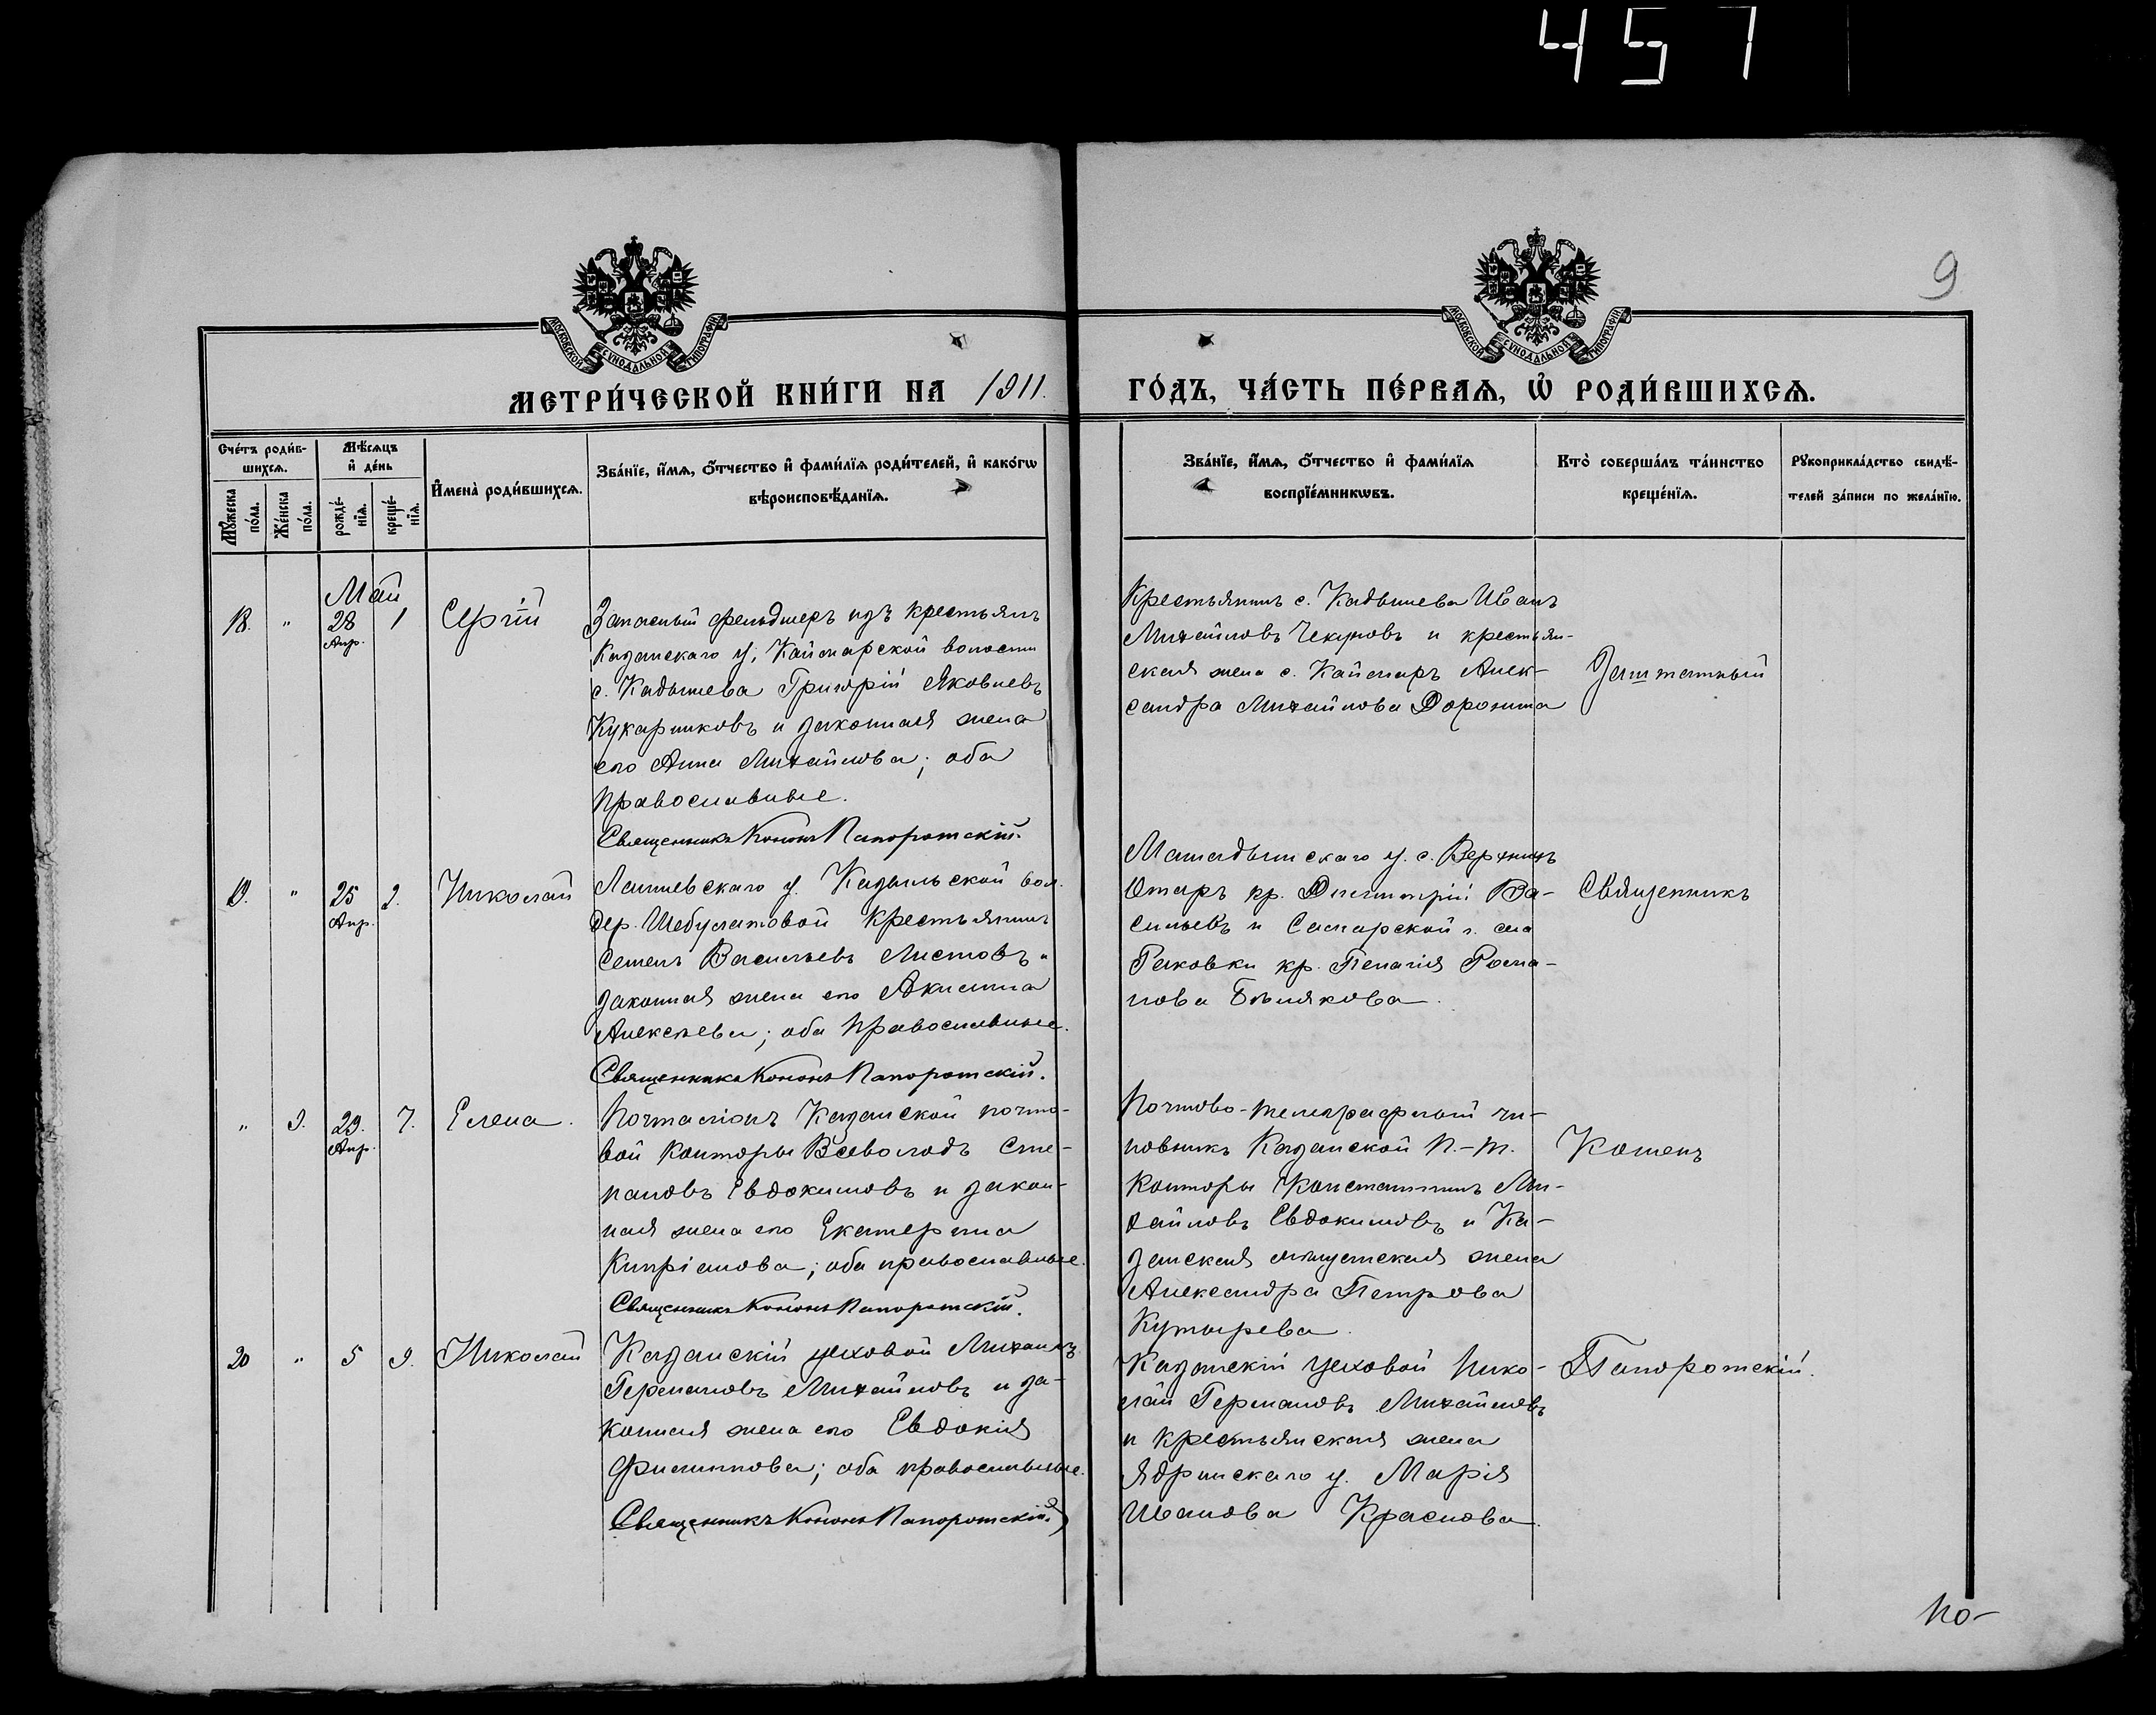 457
9
МОСКОВСКОЙ СѴНОДАЛЬНОЙ ТИПОГРАФІИ
МОСКОВСКОЙ СѴНОДАЛЬНОЙ ТИПОГРАФІИ
МЕТРИ́ЧЕСКОЙ КНИ́ГИ НА 1911. ГО́ДЪ, ЧА́СТЬ ПЕ́РВАѦ, Ѡ҆ РОДИ́ВШИХСѦ.
Сче́тъ роди́в-
шихсѧ.
Мꙋ́жеска по́ла.
Же́нска по́ла.
Мѣ́сѧцъ
и҆ де́нь
рожде́-
нїѧ.
креще́-
нїѧ.
И҆мена̀ роди́вшихсѧ.
Зва́нїе, и҆́мѧ, ѻ҆́тчество и҆ фами́лїѧ роди́телей, и҆ како́гѡ
вѣроисповѣ́данїѧ.
Зва́нїе, и҆́мѧ, ѻ҆́тчество и҆ фами́лїѧ
воспрїе́мникѡвъ.
Кто̀ соверша́лъ та́инство
креще́нїѧ.
Рꙋкоприкла́дство свидѣ́-
телей за́писи по жела́нїю.
Май
18. " 28 Апр. 1 Сергій
Запасный фельдшеръ изъ крестьянъ
Казанскаго у., Каймарской волости
с. Кадышева Григорій Яковлевъ
Кукарниковъ и законная жена
его Анна Михайлова; оба
православные.
Священникъ Кононъ Папоротскій.
Крестьянинъ с. Кадышева Иванъ
Михайловъ Чекуновъ и крестьян-
ская жена с. Каймаръ Алек-
сандра Михайлова Доронина
Заштатный
19. " 25 Апр. 2. Николай
Лаишевскаго у. Казыльской вол.
дер. Шебулатовой крестьянинъ
Семенъ Васильевъ Листовъ и
законная жена его Аксинна
Алексѣева; оба православные.
Священникъ Кононъ Папоротскій.
Мамадышскаго у. с. Верхнихъ
Отаръ кр. Димитрій Ва-
сильевъ и Самарской г. сла
Раковки кр. Пелагія Рома-
нова Бѣлякова.
Священникъ
" 9. 29. Апр. 7. Елена.
Почталіонъ Казанской почто-
вой конторы Всеволодъ Сте-
пановъ Евдокимовъ и закон-
ная жена его Екатерина
Кипріанова; оба православные.
Священникъ Кононъ Папоротскій.
Почтово-телеграфный чи-
новникъ Казанской п.-т.
конторы Константинъ Ми-
хайловъ Евдокимовъ и Ка-
занская мѣщанская жена
Александра Петрова
Кутырева.
Кононъ
20 " 5 9. Николай
Казанскій цеховой Михаилъ
Германовъ Михайловъ и за-
конная жена его Евдокія
Филиппова; оба православные.
Священникъ Кононъ Папоротскій
Казанскій цеховой Нико-
лай Германовъ Михайловъ
и крестьянская жена
Ядринскаго у. Марія
Иванова Краснова.
Папоротскій.
по-